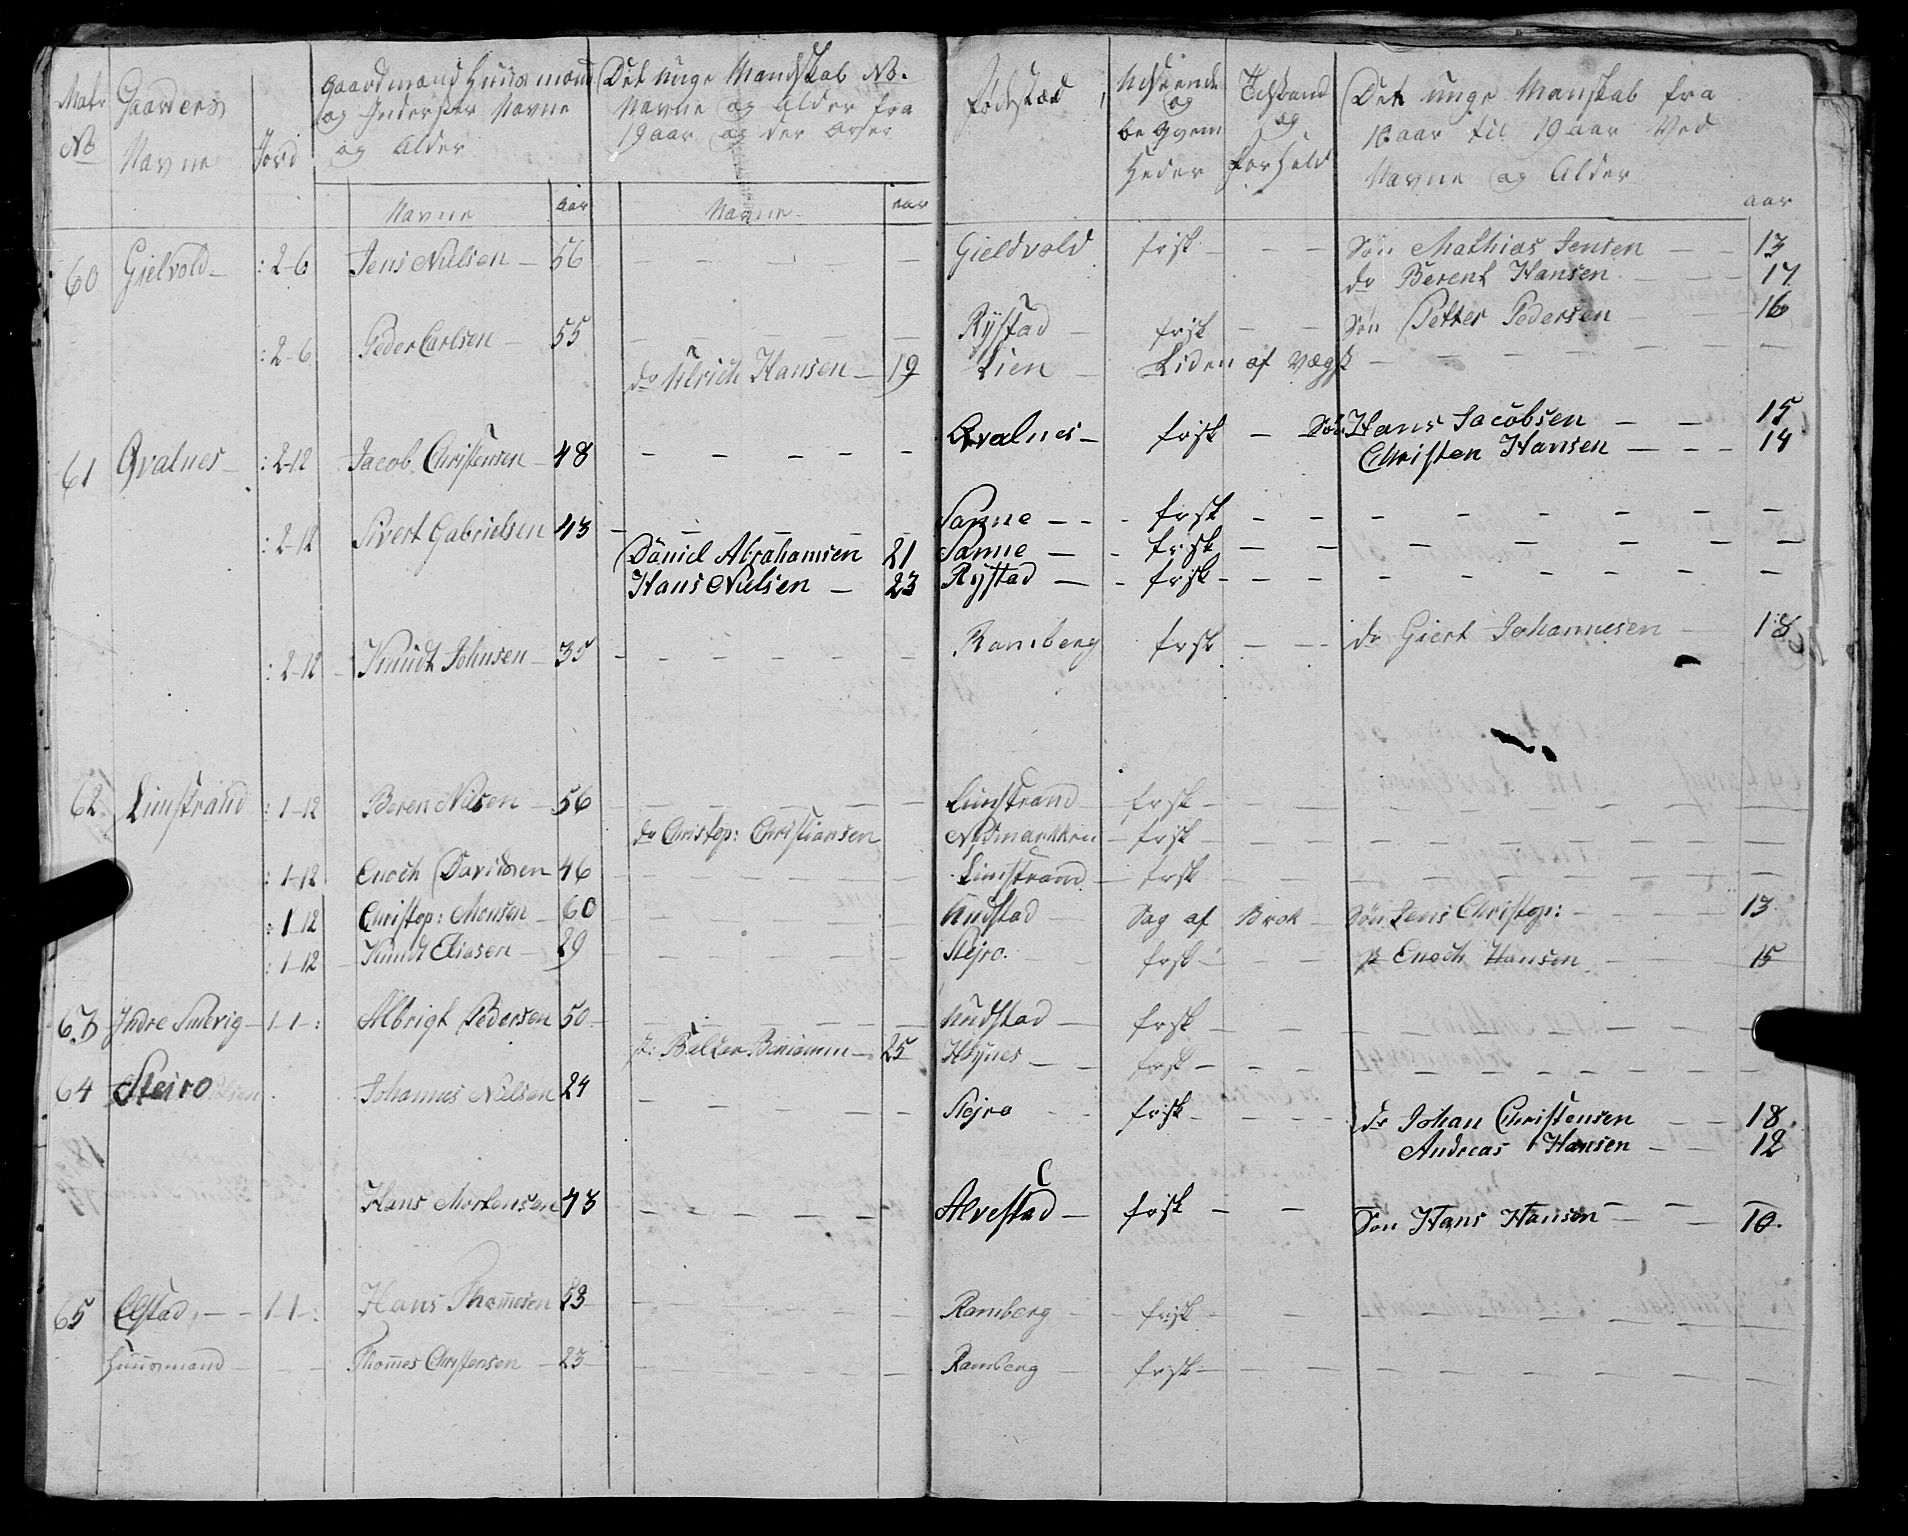 Matr No
Gaardens Navne
Jord
Gaardmænd Huusmænd og Inderster Navne og Alder
Det unge Mandskab No. Navne og Alder fra 19 aar og der over
Fødstæd
Udseende og beqvem Heder
Tilstand og Forhold
Det unge Manskab fra 10 aar til 19 aar Ved Navne og Alder
Navne aar Navne aar aar
60 Gielvold : 2-6 Jens Nielsen 56 Gieldvold frisk Søn Mathias Jensen 13
do Berent Hansen 17
: 2-6 Peder Carlsen 55 Rystad frisk Søn Petter Pedersen 16
do Ulrich Hansen 19 Lien Liden af Vægst
61 Qvalnes : 2-12 Jacob Christensen 48 Qvalnes frisk Søn Hans Jacobsen 15
Christen Hansen 14
: 2-12 Sivert Gabrielsen 43 Sanne frisk
Daniel Abrahamsen 21 Sanne frisk
Hans Nielsen 23 Rystad frisk
: 2-12 Knudt Johnsen 35 Ramberg frisk do Giert Johannesen 18
62 Limstrand : 1-12 Beren Nilsen 56 Limstrand frisk
do Christop: Christiansen frisk
: 1-12 Enoch Davidsen 46 Limstrand frisk
: 1-12 Christop: Monsen 60 Uudstad Sag af Brok Søn Jens Christop: 13
: 1-12 Knudt Eliasen 29 Stejro. frisk Enoch Hansen 15
63 Indre Snevig 1-1-: Albrigt Pedersen 50 Uudstad frisk
Balzer Beniamin 25 Høynes frisk
64 Steiro Johannes Nielsen 24 Stejro frisk do Johan Christensen 18.
Andreas Hansen 12
Hans Mortensen 43 Alvestad frisk Søn Hans Hansen 10.
65 Elstad 1-1-: Hans Thomesen 53 Ramberg frisk
Huusmand Thomes Christensen 23 Ramberg frisk